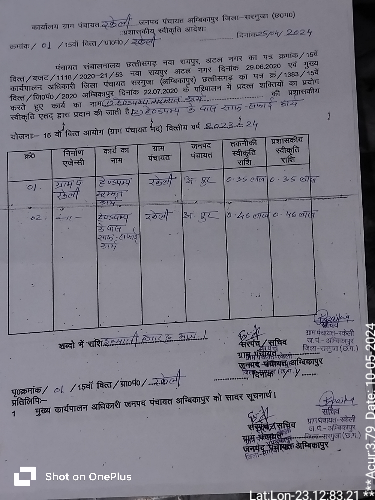 कार्यालय ग्राम पंचायत रकेली जनपद पंचायत अम्बिकापुर जिला-सरगुजा (छ०ग०)
प्रशासकीय स्वीकृति आदेश
क्रमांक/ 01 /15वां वित्त/प्रा०/ रकेली दिनांक 25/04/2024
पंचायत संचालनालय छत्तीसगढ़ नवा रायपुर, अटल नगर का पत्र क्रमांक/15वें
वित्त/बजट/1116/2020-21/53 नवा रायपुर अटल नगर दिनांक 29.06.2020 एवं मुख्य
कार्यपालन अधिकारी जिला पंचायत अम्बिकापुर (छत्तीसगढ़) का पत्र क्र/1363/15वें
वित्त/जि०पं०/2020 अम्बिकापुर दिनांक 22.07.2020 के परिपालन में प्रदत्त शक्तियों का प्रयोग
करते हुए कार्य का नाम की प्रशासकीय
स्वीकृति एतद् द्वारा प्रदान की जाती है
योजना:- 15 वें वित्त आयोग (ग्राम पंचायत मद) वित्तीय वर्ष 2023-24
क्र० निर्माण एजेन्सी कार्य का नाम ग्राम पंचायत जनपद पंचायत तकनीकी स्वीकृति राशि प्रशासकीय स्वीकृति राशि
01. ग्राम पं रकेली हेण्डपम्प कार्य रकेली अ. पुर 0.35 लाख 0.35 लाख
02. -11- हेण्डपम्प के पास साफ-सफाई कार्य रकेली अ. पुर 0.40 लाख 0.40 लाख
शब्दो में राशि
सरपंच/सचिव
ग्राम पंचायत
जनपद पंचायत अम्बिकापुर
दिनांक
सचिव
ग्राम पंचायत-रकेली
ज.पं.-अम्बिकापुर
जिला-सरगुजा (छ.ग.)
पृ०क्रमांक/ 01 /15वां वित्त/प्रा०/ रकेली
प्रतिलिपि:-
1 मुख्य कार्यपालन अधिकारी जनपद पंचायत अम्बिकापुर को सादर सूचनार्थ।
सरपंच/सचिव
ग्राम पंचायत
जनपद पंचायत अम्बिकापुर
सचिव
ग्राम पंचायत-रकेली
ज.पं.-अम्बिकापुर
जिला-सरगुजा (छ.ग.)
Shot on OnePlus
Lat:Lon-23.12:83.21
***Acur:3.79 Dat:10-05-2024